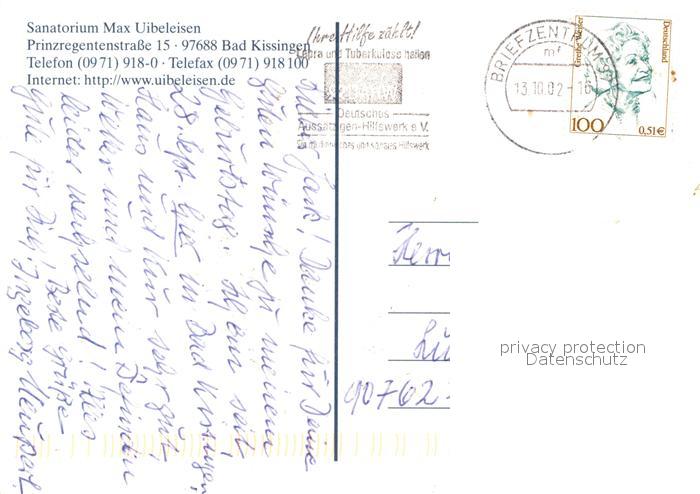 Sanatorium Max Uibeleisen
Prinzregentenstraße 15 · 97688 Bad Kissingen
Telefon (0971) 918-0 · Telefax (0971) 918100
Internet: http://www.uibeleisen.de
Ihre Hilfe zählt!
Lepra und Tuberkulose heilen
Deutsches
Aussätzigen-Hilfswerk e.V.
BRIEFZENTRUM
mf
13.10.02 - 16
Grethe Weiser
Deutschland
100
0,51€
Danke für Deine
guten Wünsche zu meinem
Geburtstag. Ich bin seit
28. Sept. hier in Bad Kissingen,
Haus und Kur sehr gut.
Wetter und mein Befinden
leider wechselnd! Alles
Gute für Dich! Beste Grüße
Ingeborg
Herr
90762
privacy protection
Datenschutz